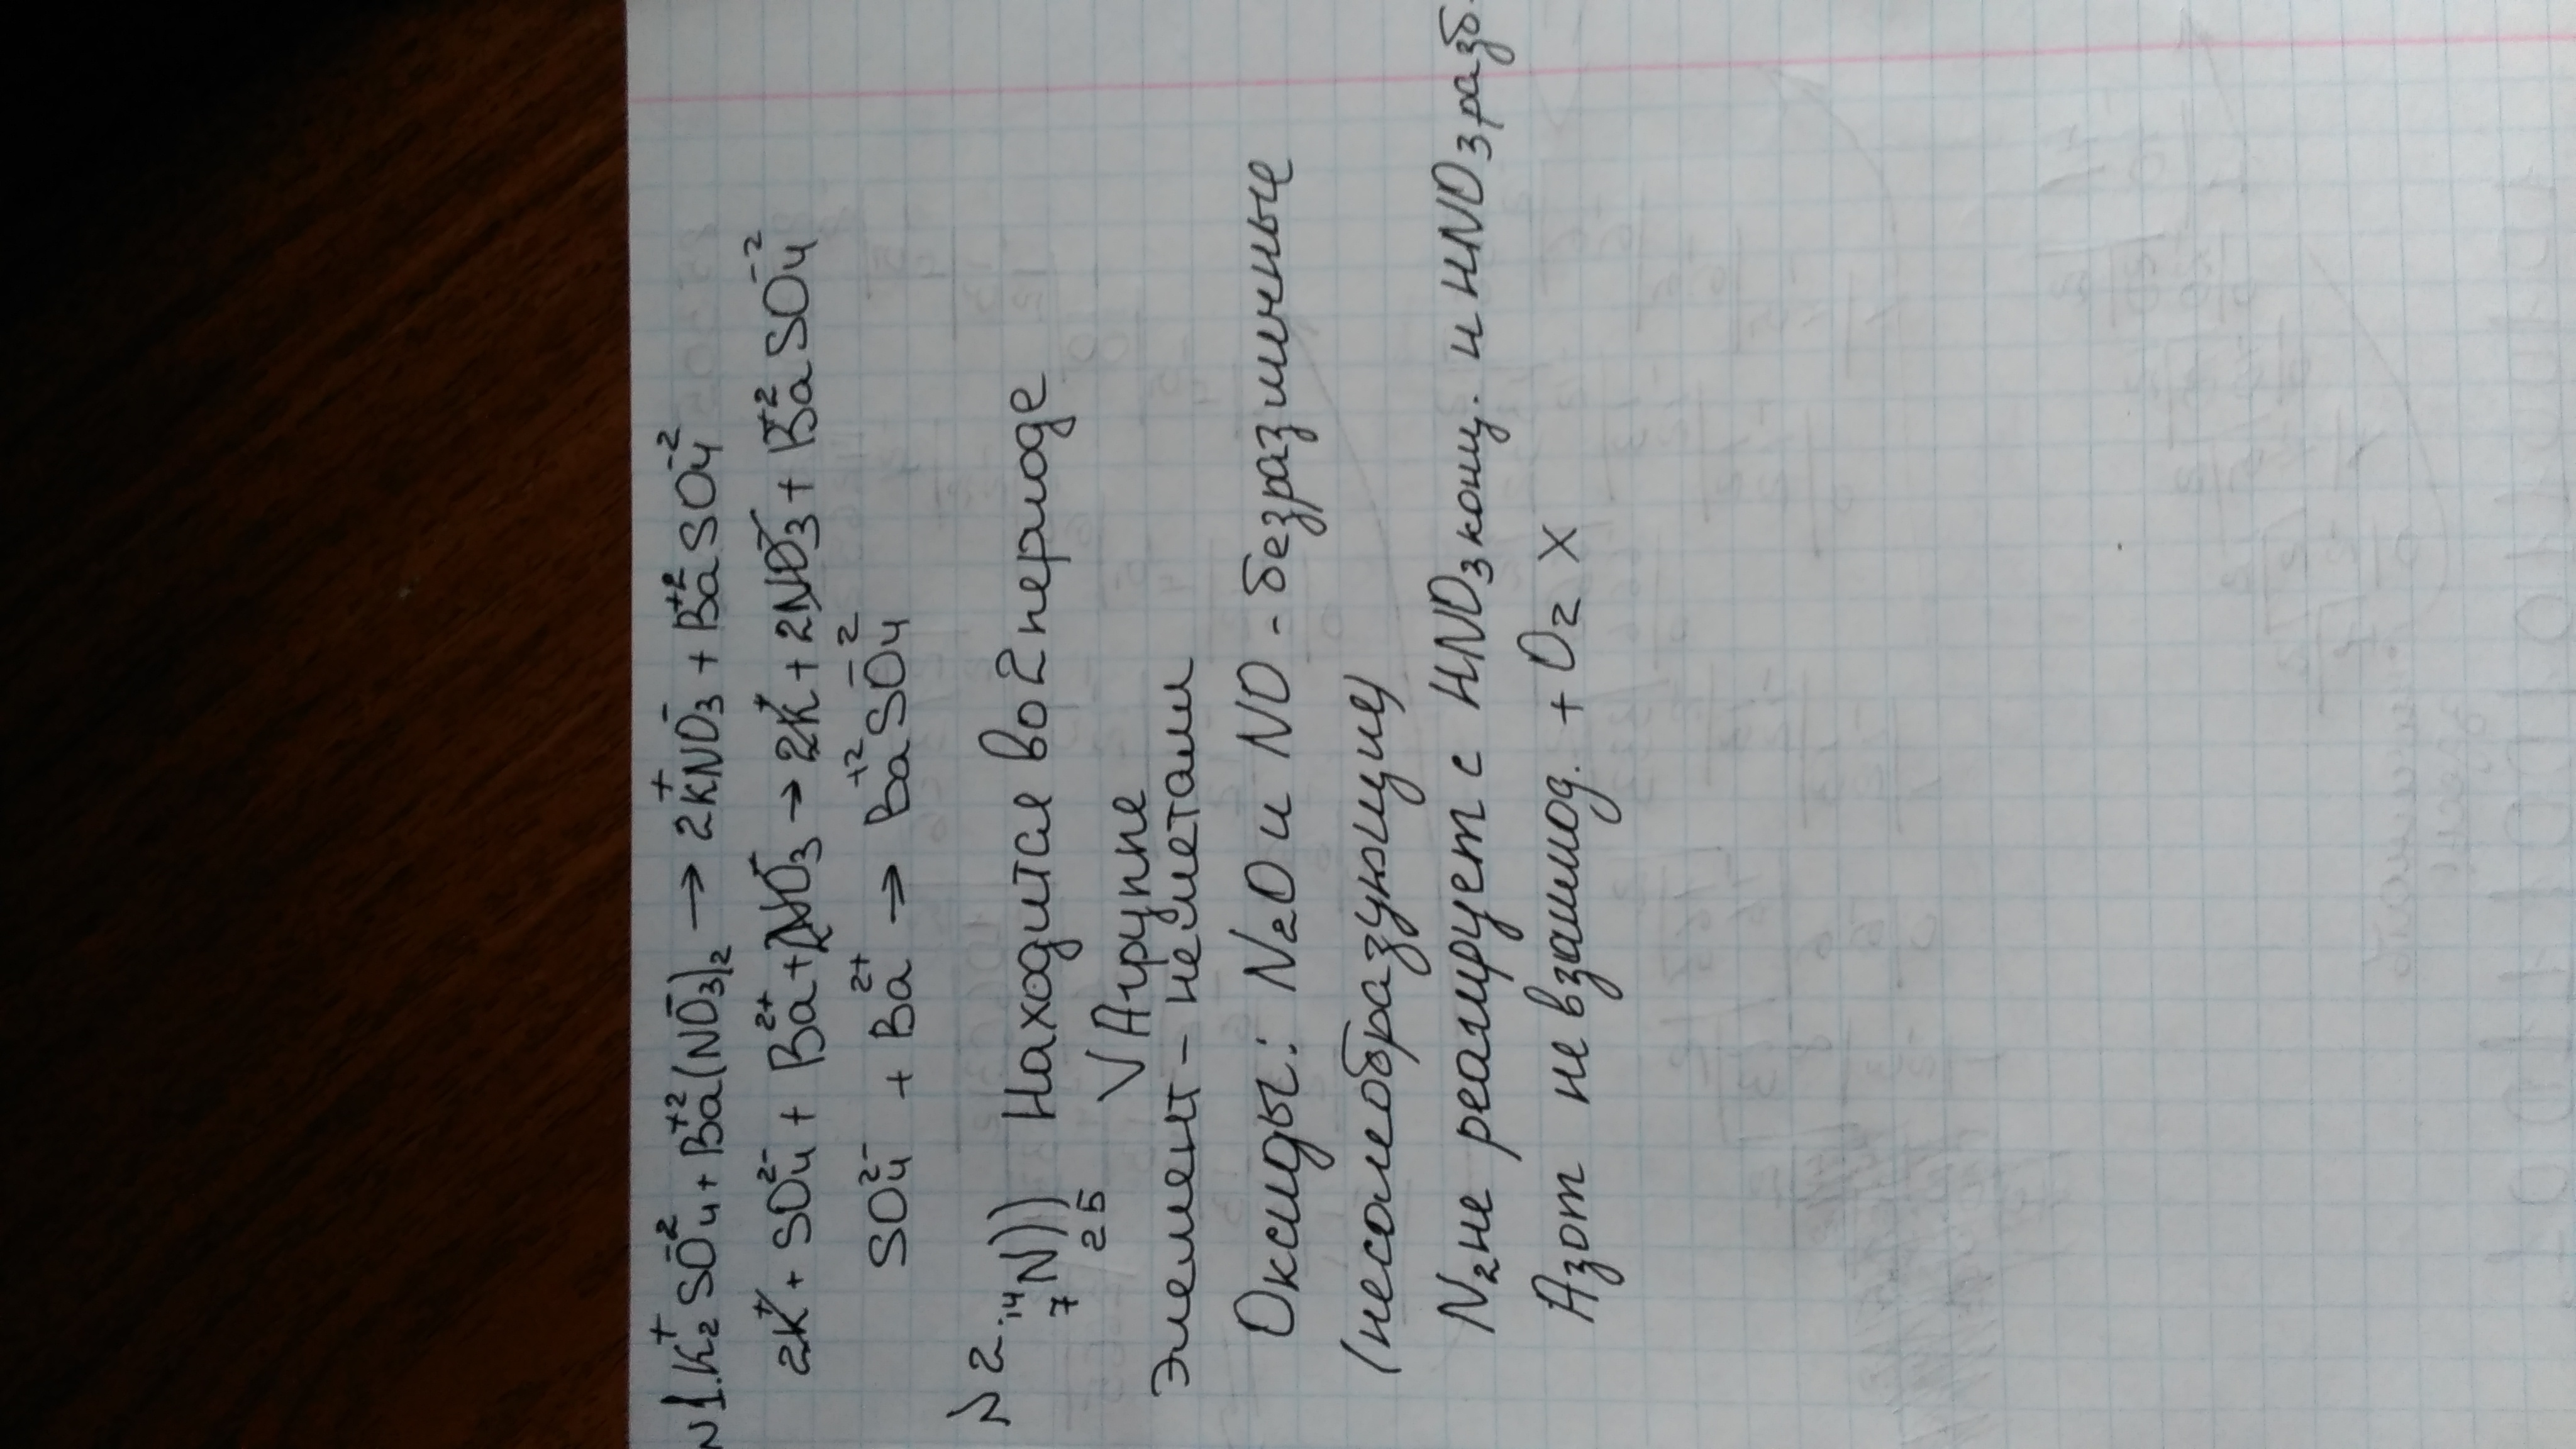 N1. K₂⁺SO₄⁻² + Ba⁺²(NO₃⁻)₂ → 2K⁺NO₃⁻ + Ba⁺²SO₄⁻²
2K⁺ + SO₄²⁻ + Ba²⁺ + 2NO₃⁻ → 2K⁺ + 2NO₃⁻ + Ba⁺²SO₄⁻²
SO₄²⁻ + Ba²⁺ → Ba⁺²SO₄⁻²
N2. ¹⁴₇N)) Находится во 2 периоде
2 5 VA группе
Элемент – неметалл
Оксиды: N₂O и NO - безразличные
(несолеобразующие)
N₂ не реагирует с HNO₃ конц. и HNO₃ разб.
Азот не взаимод. + O₂ X